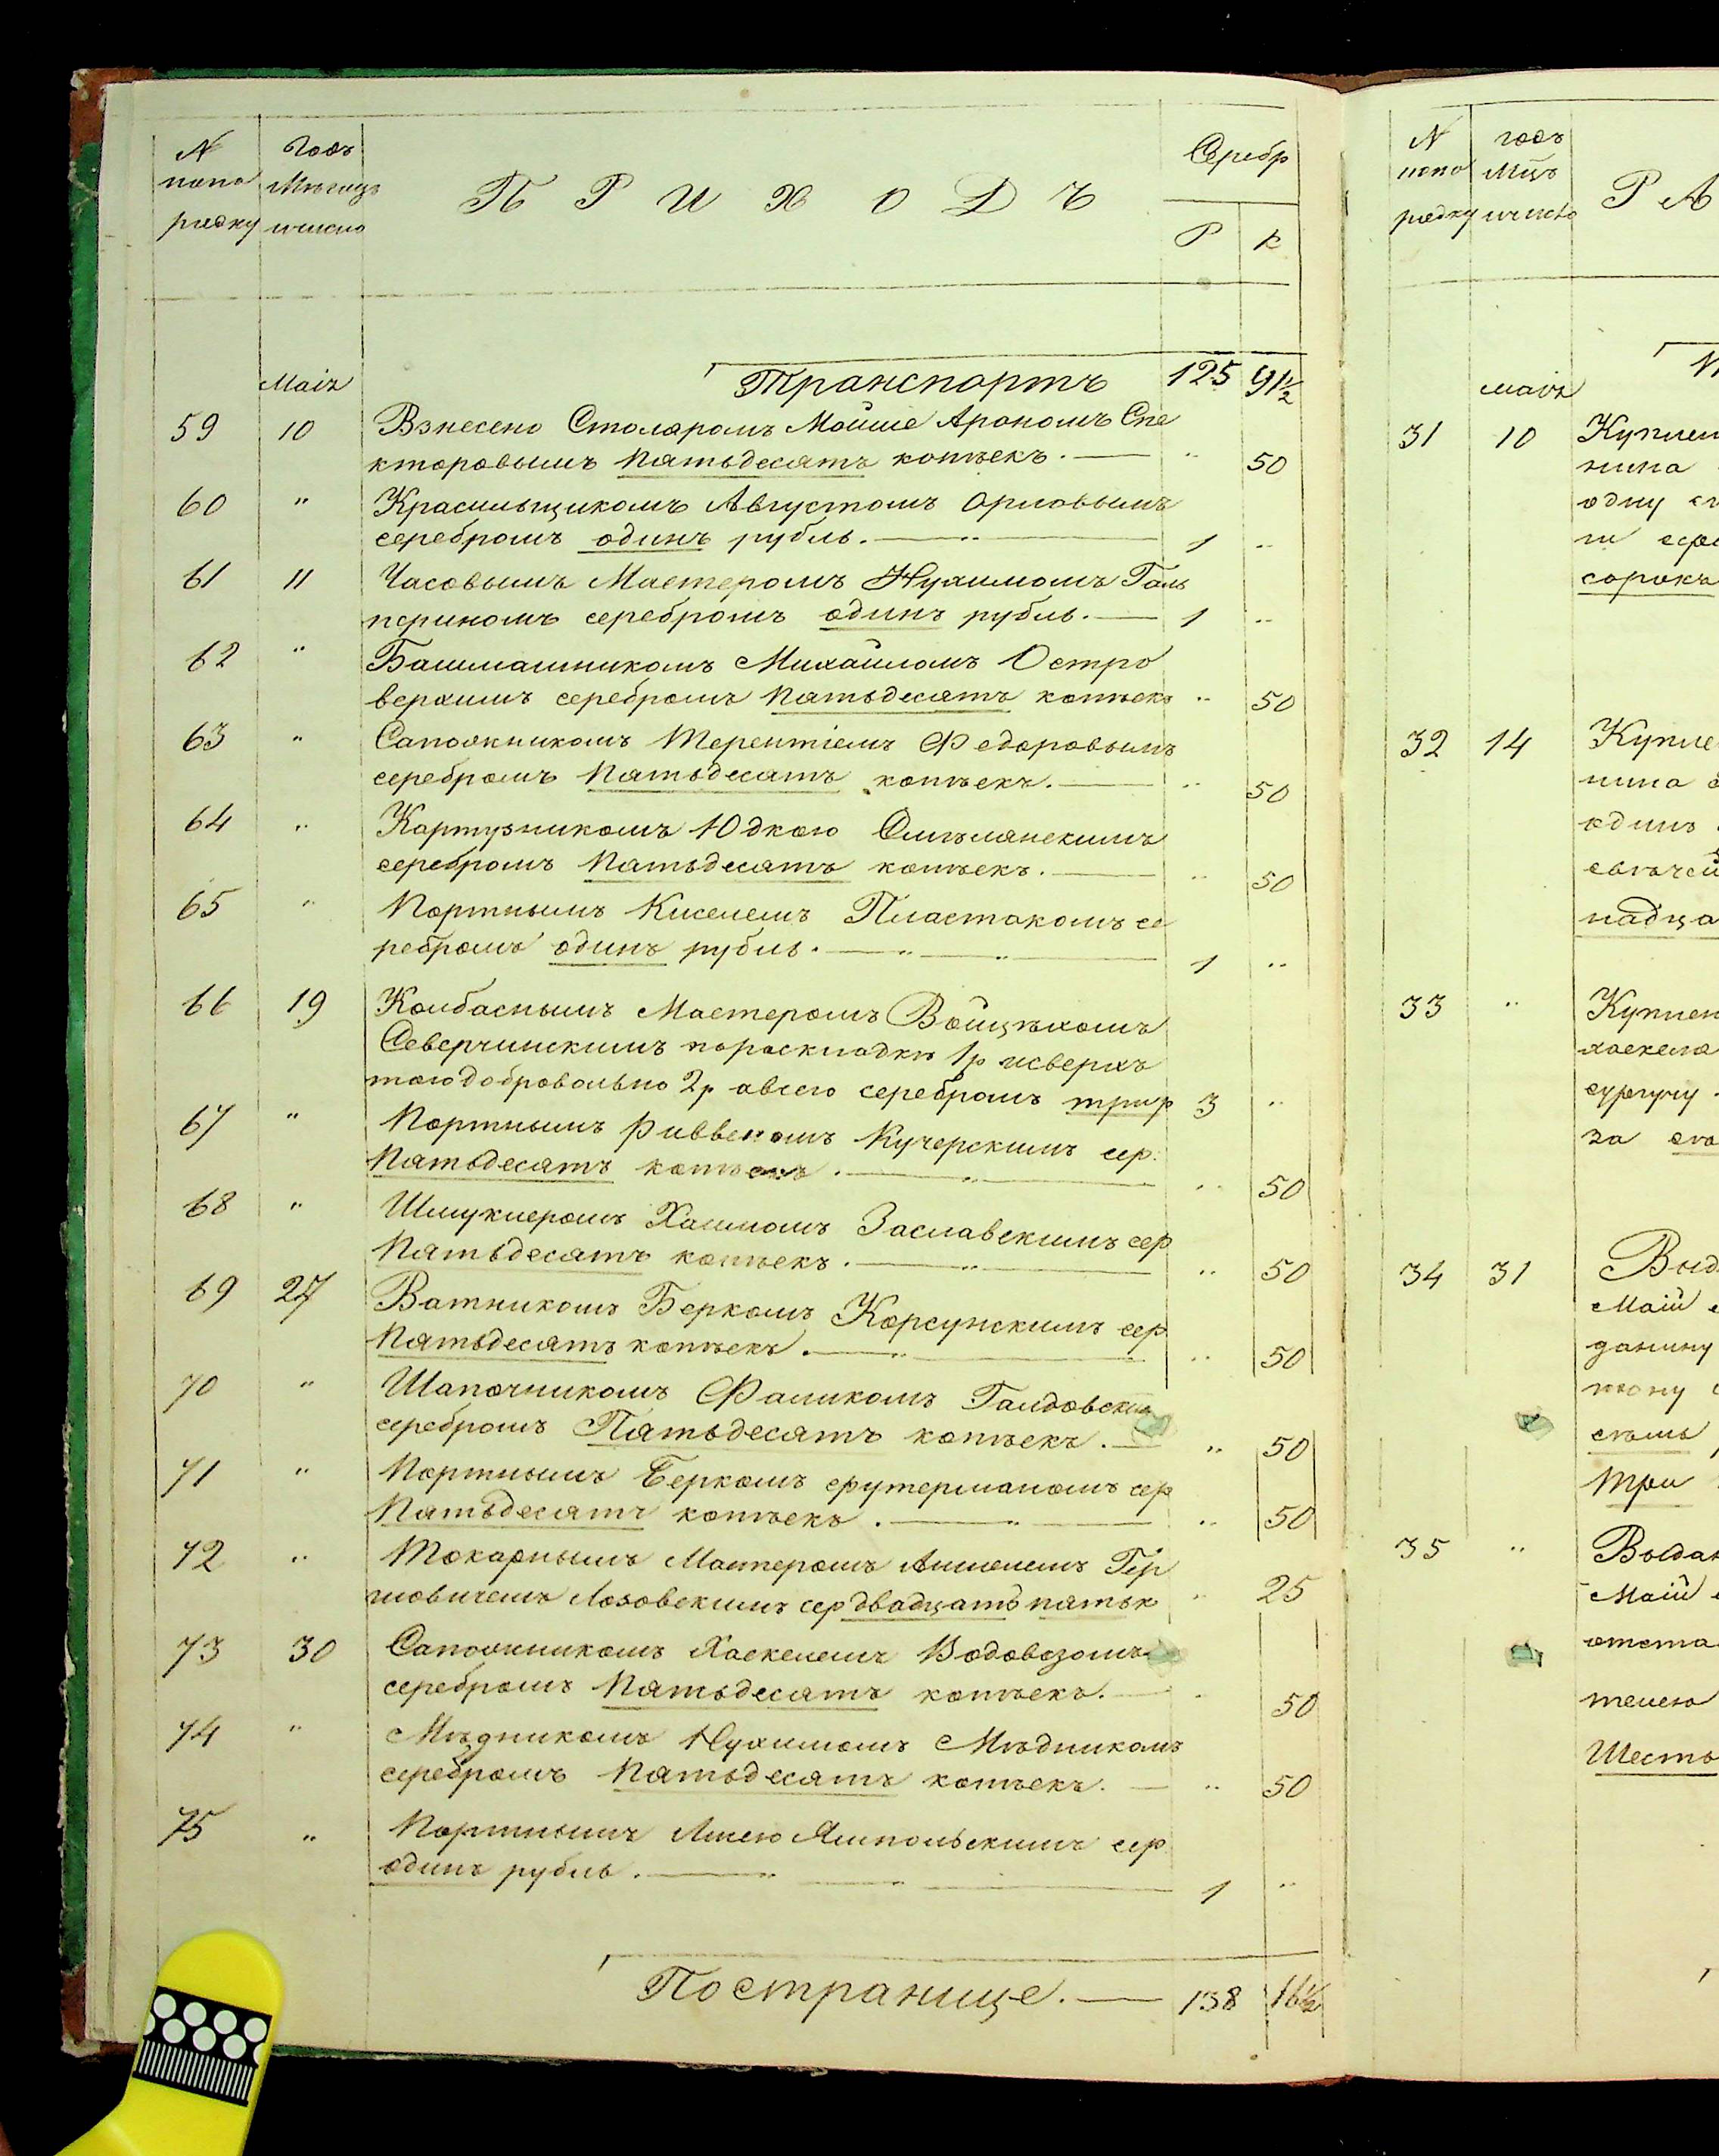 N Годъ Серебр
попо Мѣсяцъ П Р И Х О Д Ъ
рядку ичисло Р К
Маія Транспортъ 125 91½
59 10 Взнесено Столяромъ Мойше Арономъ Спе
кторовымъ пятьдесятъ копѣекъ. — „ 50
60 „ Красильщикомъ Августомъ Орловымъ
серебромъ одинъ рубль. — „ — 1 „
61 11 Часовымъ Мастеромъ Нухимомъ Галь
периномъ серебромъ одинъ рубль. — 1 „
62 „ Башмашникомъ Михайломъ Остро
верхимъ серебромъ пятьдесятъ копѣекъ „ 50
63 „ Сапожникомъ Терентіемъ Федоровымъ
серебромъ пятьдесятъ копѣекъ. — „ 50
64 „ Картузникомъ Юдкою Смѣлянскимъ
серебромъ пятьдесятъ копѣекъ. — „ 50
65 „ Портнымъ Киселемъ Пластакомъ се
ребромъ одинъ рубль. — „ — „ — 1 „
66 19 Колбаснымъ Мастеромъ Войцѣхомъ
Северчинскимъ пораскладки 1р исверхъ
тогодобровольно 2р авсего серебромъ три р 3 „
67 „ Портнымъ Кучерскимъ сер.
пятьдесятъ копѣекъ. — „ — „ 50
68 „ Шмуклеромъ Хаимомъ Заславскимъ сер
пятьдесятъ копѣекъ. — „ — „ 50
69 27 Ватникомъ Беркомъ Корсунскимъ сер.
пятьдесятъ копѣекъ. — „ — „ 50
70 „ Шапочникомъ Фаликомъ
серебромъ Пятьдесятъ копѣекъ. — „ 50
71 „ Портнымъ Беркомъ Фрутерманомъ сер
пятьдесятъ копѣекъ. — „ — „ 50
72 „ Токарнымъ Мастеромъ Аншелемъ Гер
шовичемъ Лозовскимъ сер двадцать пять к „ 25
73 30 Сапожникомъ Хаскелемъ Водовозомъ
серебромъ пятьдесятъ копѣекъ. — „ 50
74 „ Мѣдникомъ Нухимомъ Мѣдникомъ
серебромъ пятьдесятъ копѣекъ. — „ 50
75 „ Портнымъ Лейею Ямпольскимъ сер
одинъ рубль. — „ — „ — 1 „
Постранице. — 138 16½
N годъ
попо Мцъ Р А
рядку ичисло
маія
31 10 Куплен
нина
одну
ти сере
сорокъ
32 14 Купле
нина
одинъ
свѣчей
надца
33 „ Куплен
хаскела
сургучу
за
34 31 Выд
Маій
данину
тону
семь
три
35 „ Выдан
Маій
отста
телею
Шесть